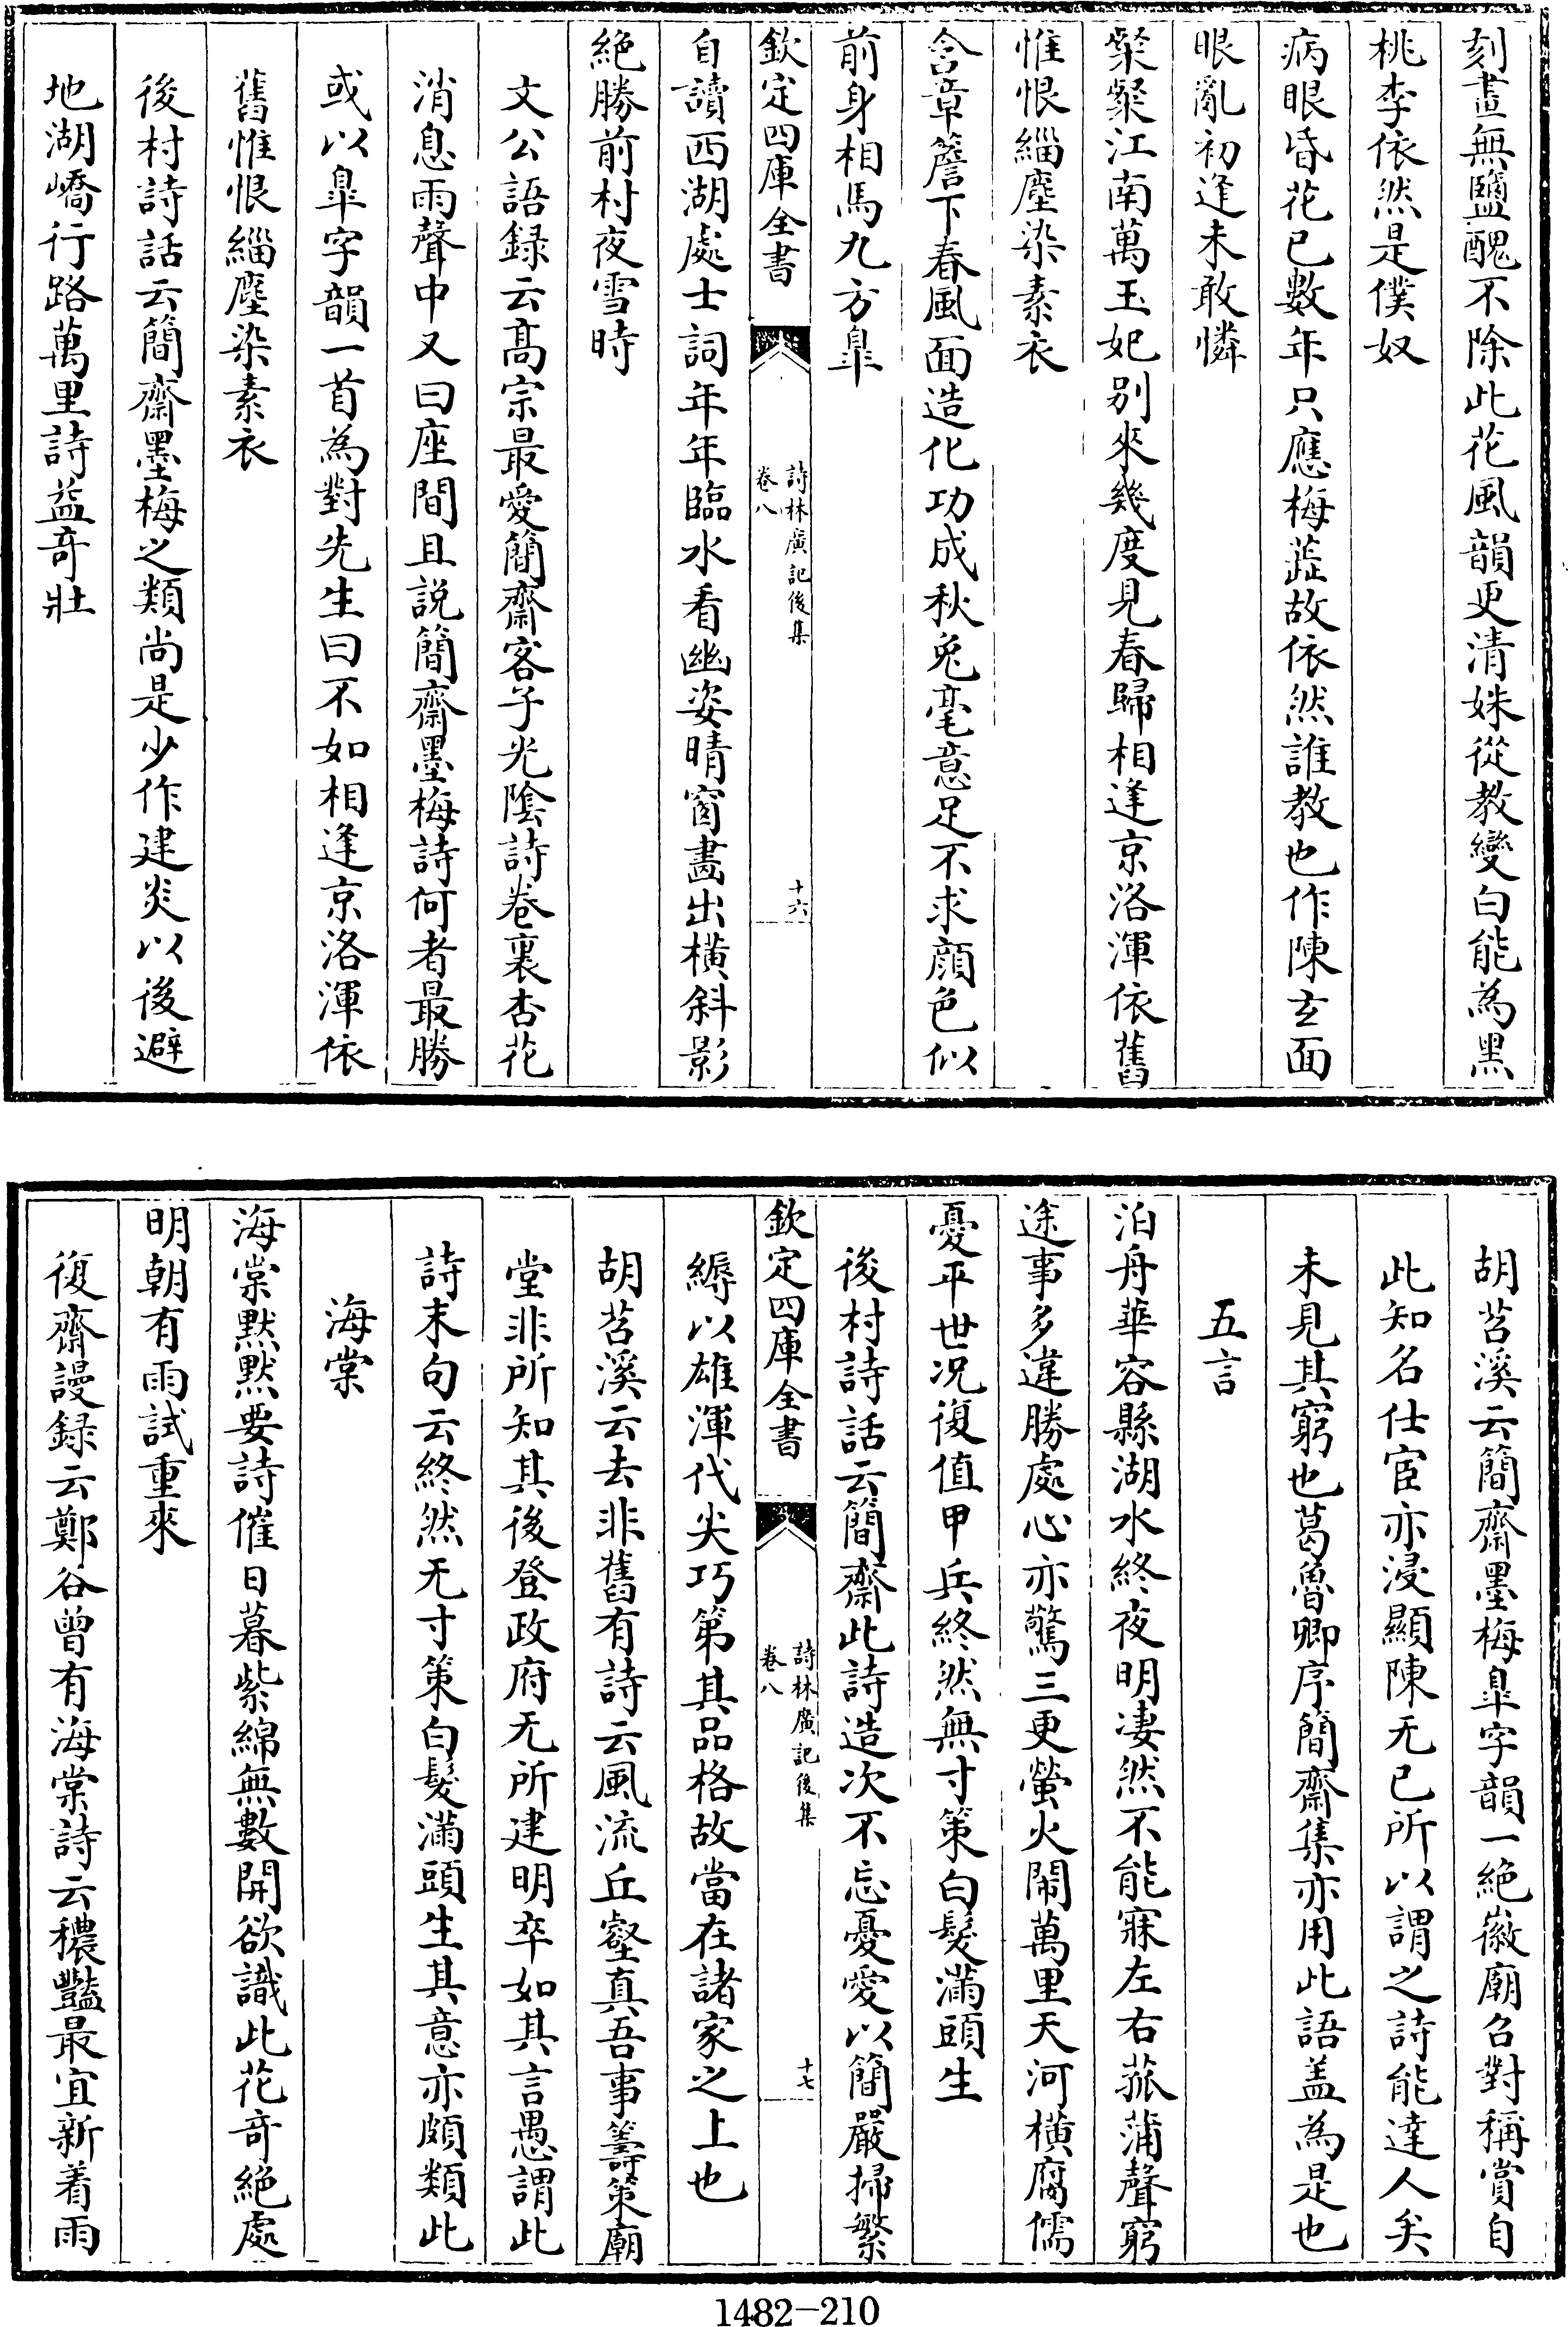 刻畫無鹽醜不除此花風韻更清姝從教變白能為黑
桃李依然是僕奴
病眼昏花已數年只應梅蕋故依然誰教也作陳玄面
眼亂初逢未敢憐
粲粲江南萬玉妃别來幾度見春歸相逢京洛渾依舊
惟恨緇塵染素衣
含章簷下春風面造化功成秋兔毫意足不求顔色似
前身相馬九方臯
欽定四庫全書
詩林廣記後集
卷八
十六
自讀西湖處士詞年年臨水看幽姿晴窗畵出橫斜影
絶勝前村夜雪時
文公語録云髙宗最愛簡齋客子光陰詩卷裏杏花
消息雨聲中又曰座間且説簡齋墨梅詩何者最勝
或以臯字韻一首為對先生曰不如相逢京洛渾依
舊惟恨緇塵染素衣
後村詩話云簡齋墨梅之類尚是少作建炎以後避
地湖嶠行路萬里詩益竒壯
胡苕溪云簡齋墨梅臯字韻一絶徽廟召對稱賞自
此知名仕宦亦浸顯陳无已所以謂之詩能達人矣
未見其窮也葛魯卿序簡齋集亦用此語盖為是也
五言
泊舟華容縣湖水終夜明凄然不能寐左右菰蒲聲窮
途事多違勝處心亦驚三更螢火閙萬里天河橫腐儒
憂平世况復值甲兵終然無寸策白髮滿頭生
後村詩話云簡齋此詩造次不忘憂愛以簡嚴掃繁
欽定四庫全書
詩林廣記後集
卷八
十七
縟以雄渾代尖巧第其品格故當在諸家之上也
胡苕溪云去非舊有詩云風流丘壑真吾事籌策廟
堂非所知其後登政府无所建明卒如其言愚謂此
詩末句云終然无寸策白髮滿頭生其意亦頗類此
海棠
海棠黙黙要詩催日暮紫綿無數開欲識此花竒絶處
明朝有雨試重來
復齋謾録云鄭谷曾有海棠詩云穠豔最宜新着雨
1482-210